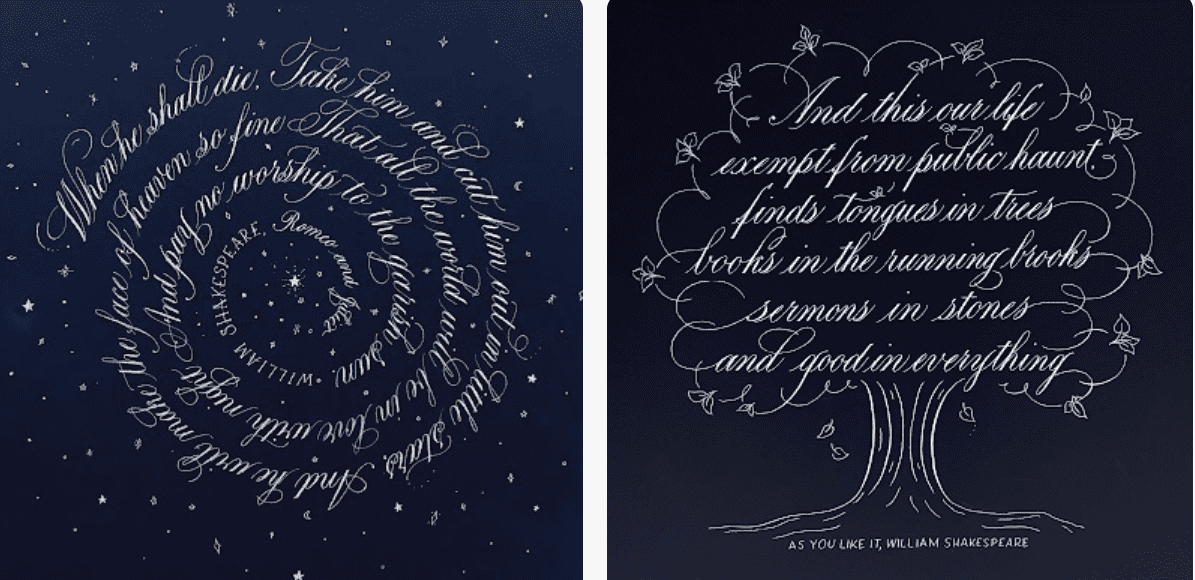 When he shall die, Take him and cut him out in little stars, And he will make
the face of heaven so fine That all the world will be in love with night
And pay no worship to the garish sun.
WILLIAM SHAKESPEARE, Romeo and Juliet
And this our life
exempt from public haunt
finds tongues in trees
books in the running brooks
sermons in stones
and good in everything
AS YOU LIKE IT, WILLIAM SHAKESPEARE